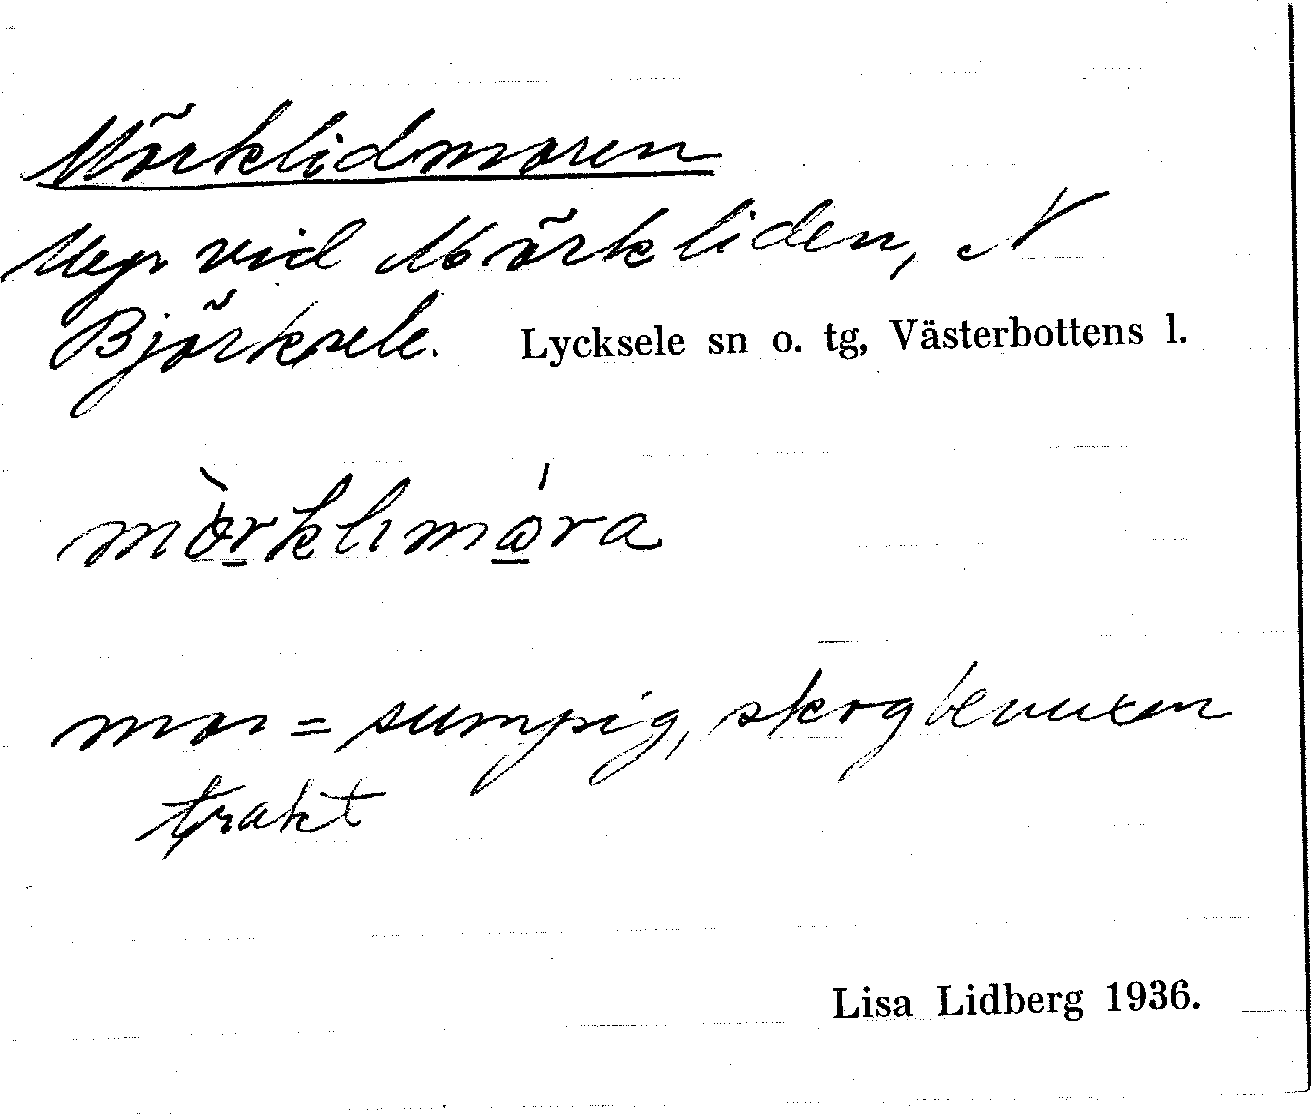 Mörklidmoren
Myr vid Mörkliden, N
Björksele. Lycksele sn o. tg, Västerbottens l.
mòrklımára
mor = sumpig, skogbevuxen
trakt
Lisa Lidberg 1936.